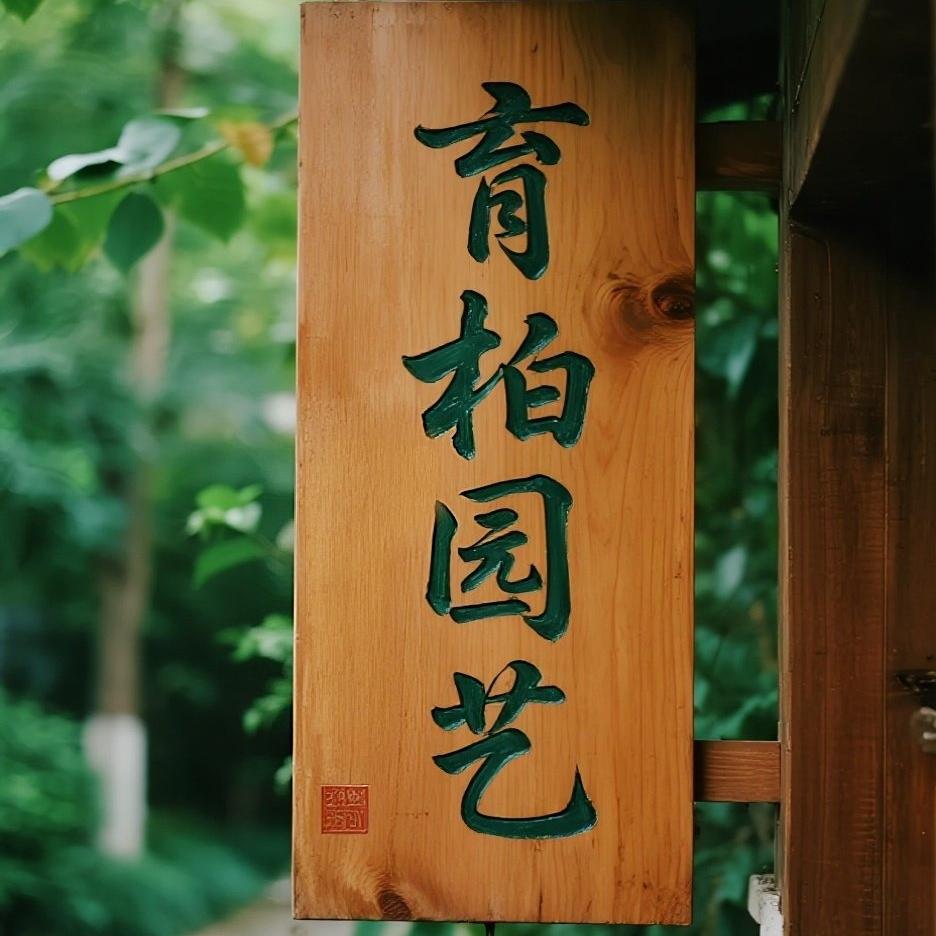 育柏园艺